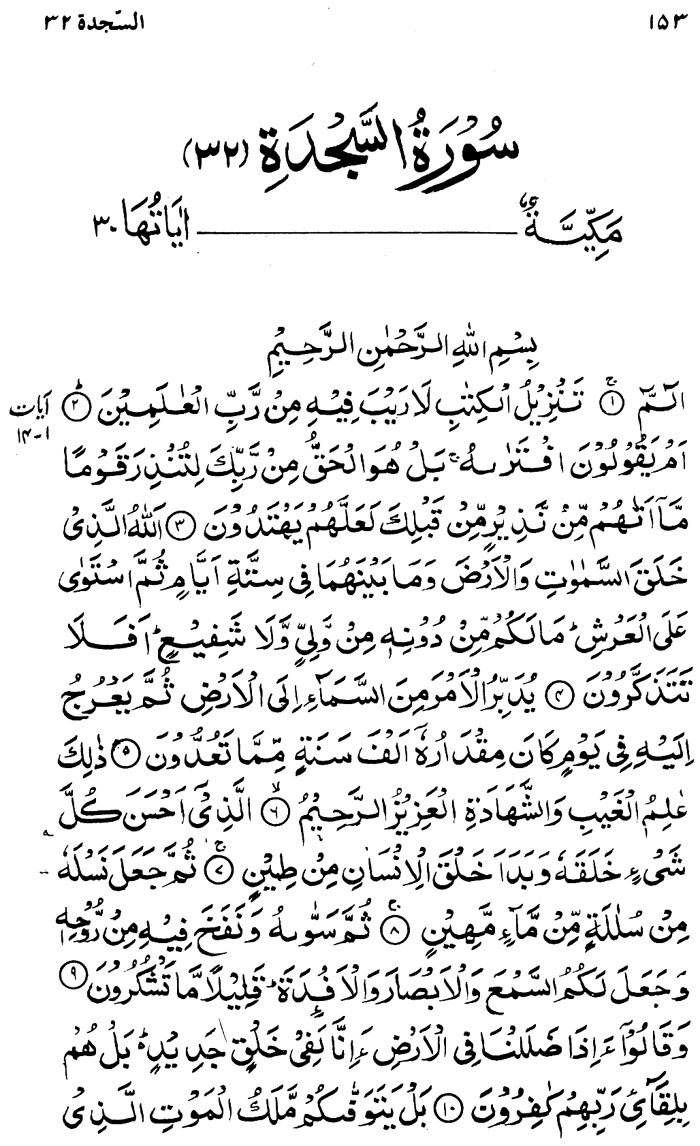 ۱۵۳ السّجدة ۳۲
سُوْرَةُ السَّجْدَةِ (۳۲)
مَكِّيَّةٌ اٰيَاتُهَا ۳۰
بِسْمِ اللهِ الرَّحْمٰنِ الرَّحِيْمِ
الٓـمّٓ ۚ﴿۱﴾ تَنْزِيْلُ الْكِتٰبِ لَا رَيْبَ فِيْهِ مِنْ رَّبِّ الْعٰلَمِيْنَ ؕ﴿۲﴾
آيات
۱-۱۴
اَمْ يَقُوْلُوْنَ افْتَرٰىهُ ۚ بَلْ هُوَ الْحَقُّ مِنْ رَّبِّكَ لِتُنْذِرَ قَوْمًا
مَّاۤ اَتٰىهُمْ مِّنْ نَّذِيْرٍ مِّنْ قَبْلِكَ لَعَلَّهُمْ يَهْتَدُوْنَ ﴿۳﴾ اَللهُ الَّذِيْ
خَلَقَ السَّمٰوٰتِ وَالْاَرْضَ وَمَا بَيْنَهُمَا فِيْ سِتَّةِ اَيَّامٍ ثُمَّ اسْتَوٰى
عَلَى الْعَرْشِ ؕ مَا لَكُمْ مِّنْ دُوْنِهٖ مِنْ وَّلِيٍّ وَّلَا شَفِيْعٍ ؕ اَفَلَا
تَتَذَكَّرُوْنَ ﴿۴﴾ يُدَبِّرُ الْاَمْرَ مِنَ السَّمَآءِ اِلَى الْاَرْضِ ثُمَّ يَعْرُجُ
اِلَيْهِ فِيْ يَوْمٍ كَانَ مِقْدَارُهٗۤ اَلْفَ سَنَةٍ مِّمَّا تَعُدُّوْنَ ﴿۵﴾ ذٰلِكَ
عٰلِمُ الْغَيْبِ وَالشَّهَادَةِ الْعَزِيْزُ الرَّحِيْمُ ۙ﴿۶﴾ الَّذِيْۤ اَحْسَنَ كُلَّ
شَيْءٍ خَلَقَهٗ وَبَدَاَ خَلْقَ الْاِنْسَانِ مِنْ طِيْنٍ ۚ﴿۷﴾ ثُمَّ جَعَلَ نَسْلَهٗ
مِنْ سُلٰلَةٍ مِّنْ مَّآءٍ مَّهِيْنٍ ۚ﴿۸﴾ ثُمَّ سَوّٰىهُ وَنَفَخَ فِيْهِ مِنْ رُّوْحِهٖ
وَجَعَلَ لَكُمُ السَّمْعَ وَالْاَبْصَارَ وَالْاَفْـِٕدَةَ ؕ قَلِيْلًا مَّا تَشْكُرُوْنَ ﴿۹﴾
وَقَالُوْۤا ءَاِذَا ضَلَلْنَا فِي الْاَرْضِ ءَاِنَّا لَفِيْ خَلْقٍ جَدِيْدٍ ؕ بَلْ هُمْ
بِلِقَآئِ رَبِّهِمْ كٰفِرُوْنَ ﴿۱۰﴾ بَلْ يَتَوَفّٰىكُمْ مَّلَكُ الْمَوْتِ الَّذِيْ